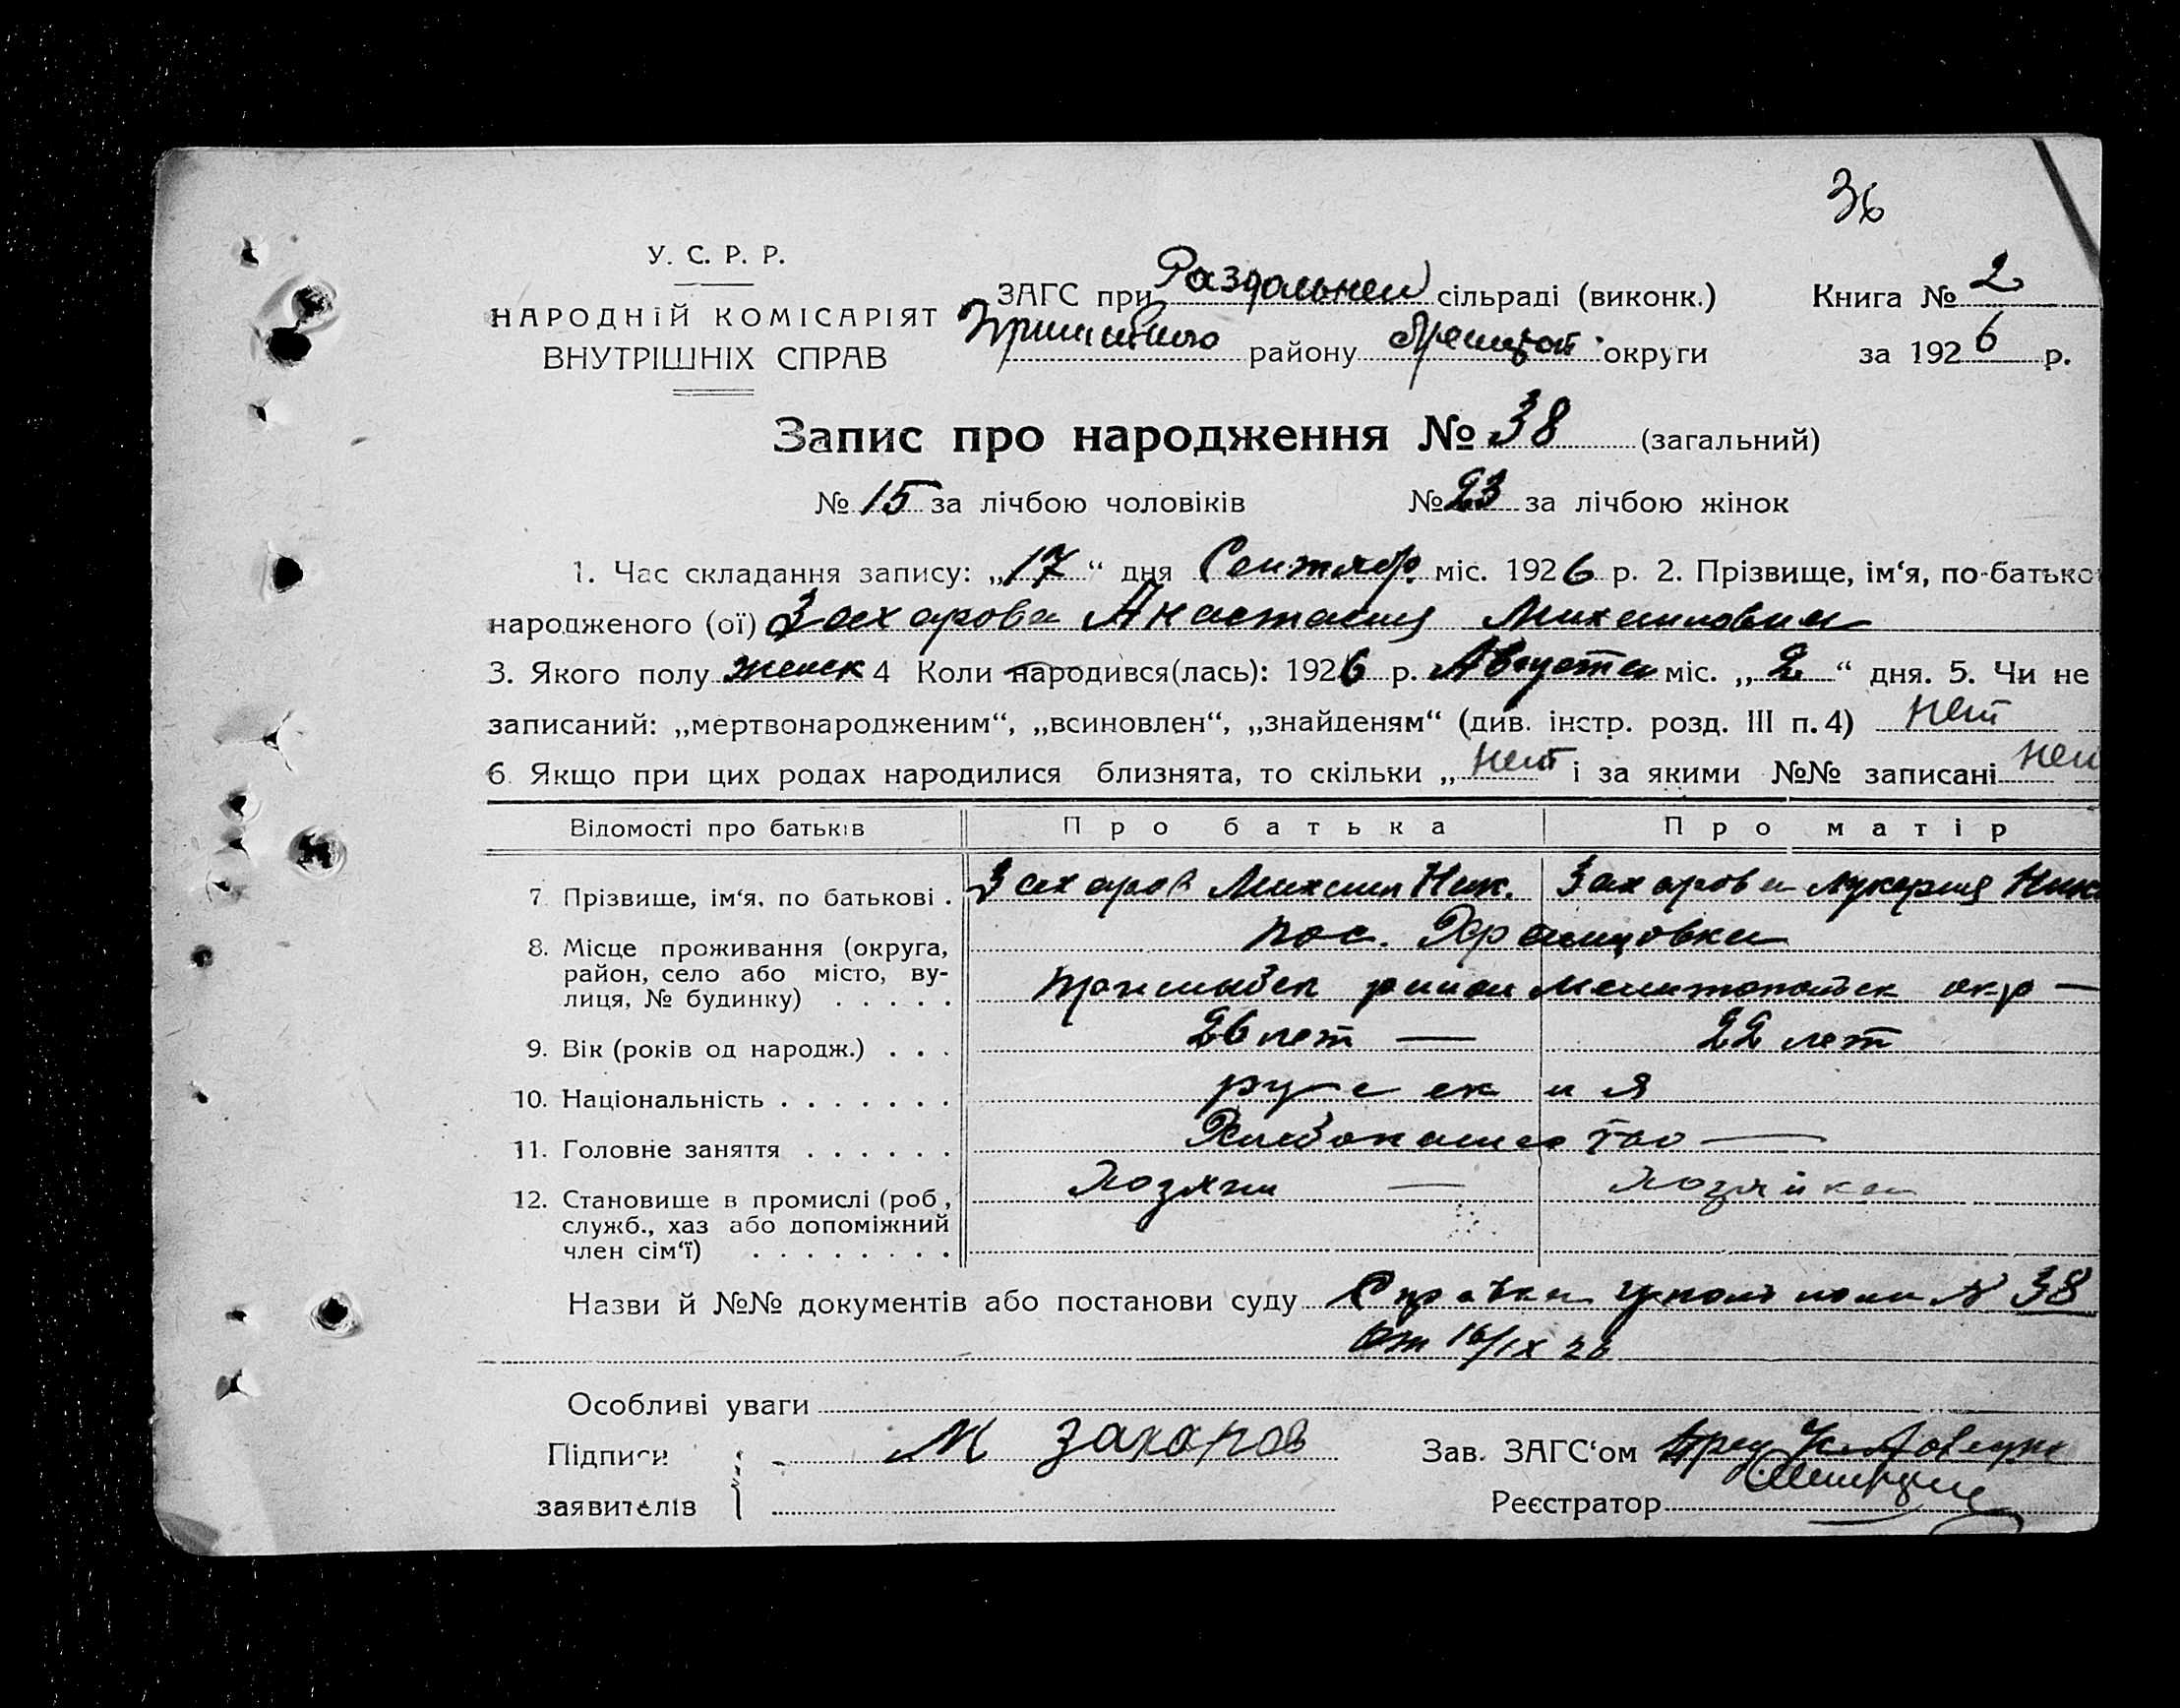 36
У. С. Р. Р.
НАРОДНІЙ КОМІСАРІЯТ
ВНУТРІШНІХ СПРАВ
ЗАГС при Раздольней сільраді (виконк.)
району округи
Книга № 2
за 1926 р.
Запис про народження № 38 (загальний)
№ 15 за лічбою чоловіків № 23 за лічбою жінок
1. Час складання запису: „17“ дня Сентябр. міс. 1926 р. 2. Прізвище, ім‘я, по-батько
народженого (ої) Захарова Анастасия Михаиловна
3. Якого полу женск 4 Коли народився(лась): 1926 р. Августа міс. „2“ дня. 5. Чи не
записаний: „мертвонародженим“, „всиновлен“, „знайденям“ (див. інстр. розд. III п. 4) нет
6 Якщо при цих родах народилися близнята, то скільки „ нет і за якими №№ записані нет
Відомості про батьків Про батька Про матір
7. Прізвище, ім‘я, по батькові . Захаров Михаил Ник. Захарова Лукерия Ник
8. Місце проживання (округа, район, село або місто, ву-лиця, № будинку) . . . . . пос.
район Мелитопольск окр —
9. Вік (років од народж.) . . . 26 лет — 22 лет
10. Національність . . . . . . . русская
11. Головне заняття . . . . . . Хлебопашество —
12. Становище в промислі (роб., служб., хаз або допоміжний член сім‘ї) . . . . . . . . Хозяин — хозяйка
Назви й №№ документів або постанови суду Справка № 38
От 16/IX 26
Особливі уваги
Підписи заявителів М Захаров
Зав. ЗАГС‘ом
Реєстратор